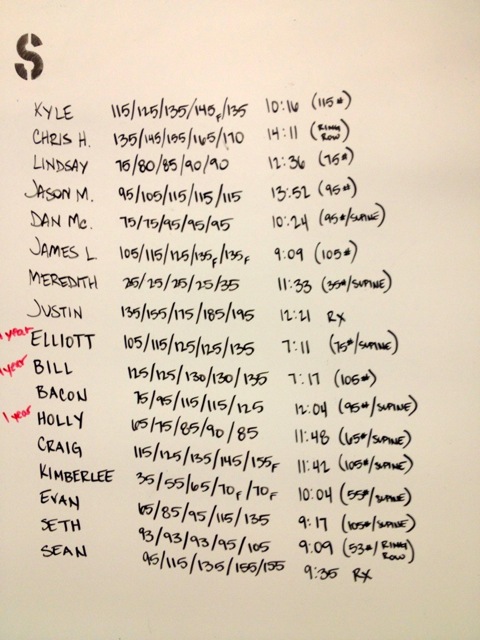 S
KYLE 115/125/135/145F/135 10:16 (115#)
CHRIS H. 135/145/155/165/170 14:11 (RING ROW)
LINDSAY 75/80/85/90/90 12:36 (75#)
JASON M. 95/105/115/115/115 13:52 (95#)
DAN Mc. 75/75/95/95/95 10:24 (95#/SUPINE)
JAMES L. 105/115/125/135F/135F 9:09 (105#)
MEREDITH 25/25/25/25/35 11:33 (35#/SUPINE)
JUSTIN 135/155/175/185/195 12:21 RX
1 year ELLIOTT 105/115/125/125/135 7:11 (75#/SUPINE)
1 year BILL 125/125/130/130/135 7:17 (105#)
BACON 75/95/115/115/125 12:04 (95#/SUPINE)
1 year HOLLY 65/75/85/90/85 11:48 (65#/SUPINE)
CRAIG 115/125/135/145/155F 11:42 (105#/SUPINE)
KIMBERLEE 35/55/65/70F/70F 10:04 (55#/SUPINE)
EVAN 65/85/95/115/135 9:17 (105#/SUPINE)
SETH 93/93/93/95/105 9:09 (53#/RING ROW)
SEAN 95/115/135/155/155 9:35 RX